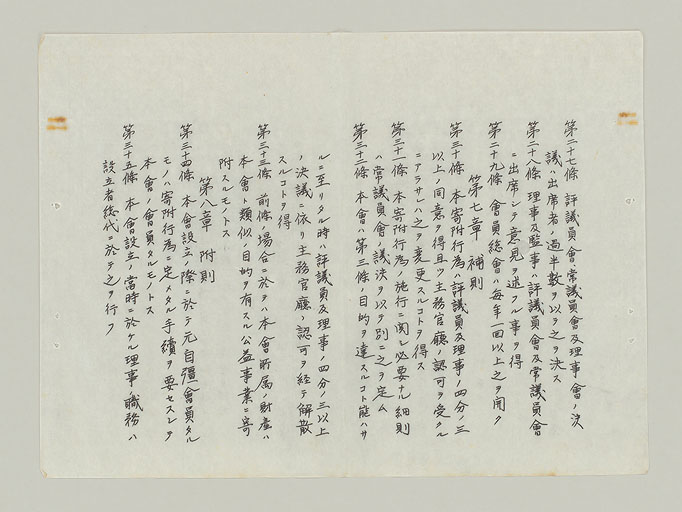 第二十七條 評議員會常議員會及理事會ノ決
議ハ出席者ノ過半數ヲ以テ之ヲ決ス
第二十八條 理事及監事ハ評議員會及常議員會
ニ出席シテ意見ヲ述フル事ヲ得
第二十九條 會員總會ハ毎年一回以上之ヲ開ク
第七章 補則
第三十條 本寄附行為ハ評議員及理事ノ四分ノ三
以上ノ同意ヲ得且ツ主務官廳ノ認可ヲ受クル
ニアラサレハ之ヲ変更スルコトヲ得ス
第三十一條 本寄附行為ノ施行ニ関シ必要ナル細則
ハ常議員會ノ議決ヲ以テ別ニ之ヲ定ム
第三十二條 本會ハ第三條ノ目的ヲ達スルコト能ハサ
ルニ至リタル時ハ評議員及理事ノ四分ノ三以上
ノ決議ニ依リ主務官廳ノ認可ヲ経テ解散
スルコトヲ得
第三十三條 前條ノ場合ニ於テハ本會所属ノ財産ハ
本會ト類似ノ目的ヲ有スル公益事業ニ寄
附スルモノトス
第八章 附則
第三十四條 本會設立ノ際ニ於テ元自彊會員タル
モノハ寄附行為ニ定メタル手續ヲ要セスシテ
本會ノ會員タルモノトス
第三十五條 本會設立ノ當時ニ於ケル理事ノ職務ハ
設立者総代ニ於テ之ヲ行フ